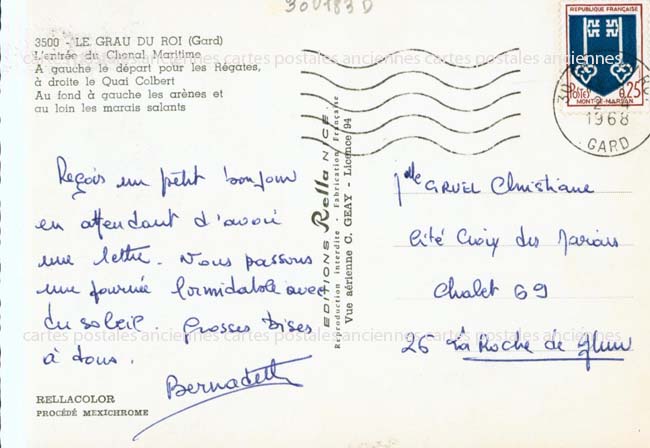 30V183D
3500 - LE GRAU DU ROI (Gard)
L'entrée du Chenal Maritime
A gauche le départ pour les Régates,
à droite le Quai Colbert
Au fond à gauche les arènes et
au loin les marais salants
REPUBLIQUE FRANÇAISE
POSTES 0,25
MONT-DE-MARSAN
1968
GARD
cartes postales anciennes cartes postales anciennes cartes postales anciennes
Reçois un petit bonjour
en attendant d'avoir
une lettre. Nous passons
une journée formidable avec
du soleil. Grosses bises
à tous.
Bernadette
EDITIONS Rella NICE
Reproduction Interdite - Fabrication Française
Vue aérienne C. GEAY - Licence 94
Mlle GRUEL Christiane
Cité Croix des Marais
Chalet 69
26 La Roche de Glun
cartes postales anciennes cartes postales anciennes cartes postales anciennes
RELLACOLOR
PROCÉDÉ MEXICHROME